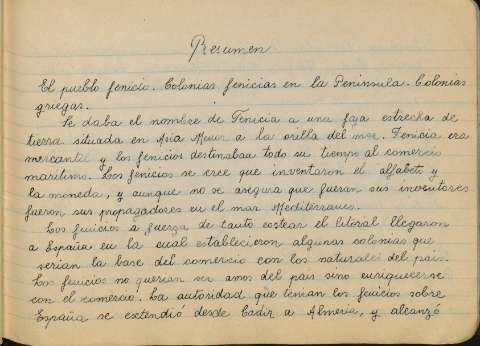 Resumen
El pueblo fenicio. Colonias fenicias en la Península. Colonias
griegas.
Se daba el nombre de Fenicia a una faja estrecha de
tierra situada en Asia Menor a la orilla del mar. Fenicia era
mercantil y los fenicios destinaban todo su tiempo al comercio
marítimo. Los fenicios se cree que inventaron el alfabeto y
la moneda, y aunque no se asegura que fueran sus inventores
fueron sus propagadores en el mar Mediterráneo.
Los fenicios a fuerza de tanto costear el litoral llegaron
a España en la cual establecieron algunas colonias que
serían la base del comercio con los naturales del país.
Los fenicios no querían ser amos del país sino enriquecerse
con el comercio. La autoridad que tenían los fenicios sobre
España se extendió desde Cádiz a Almería, y alcanzó